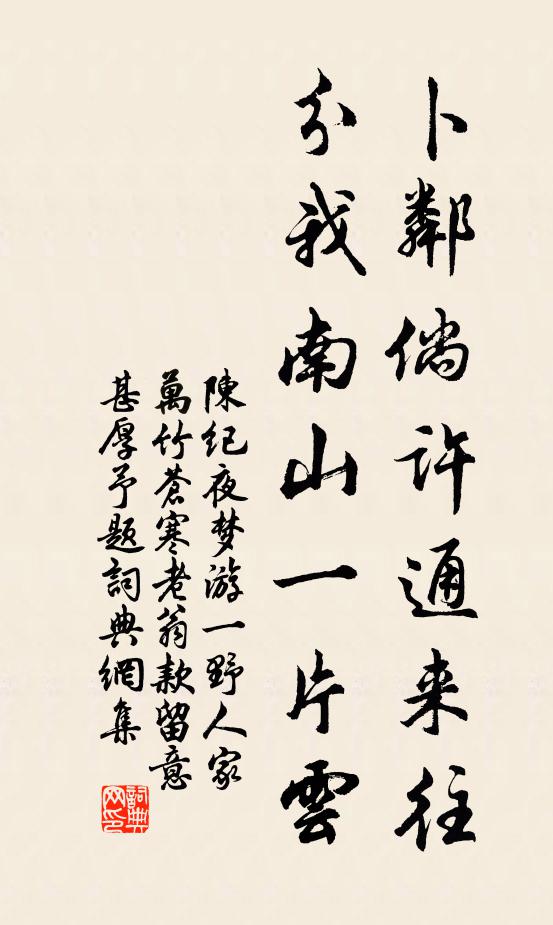 卜鄰倘許通来往
分我南山一片雲
陳紀夜梦游一野人家
萬竹蒼寒老翁款留意
甚厚予題詞典網集
詞典
网印